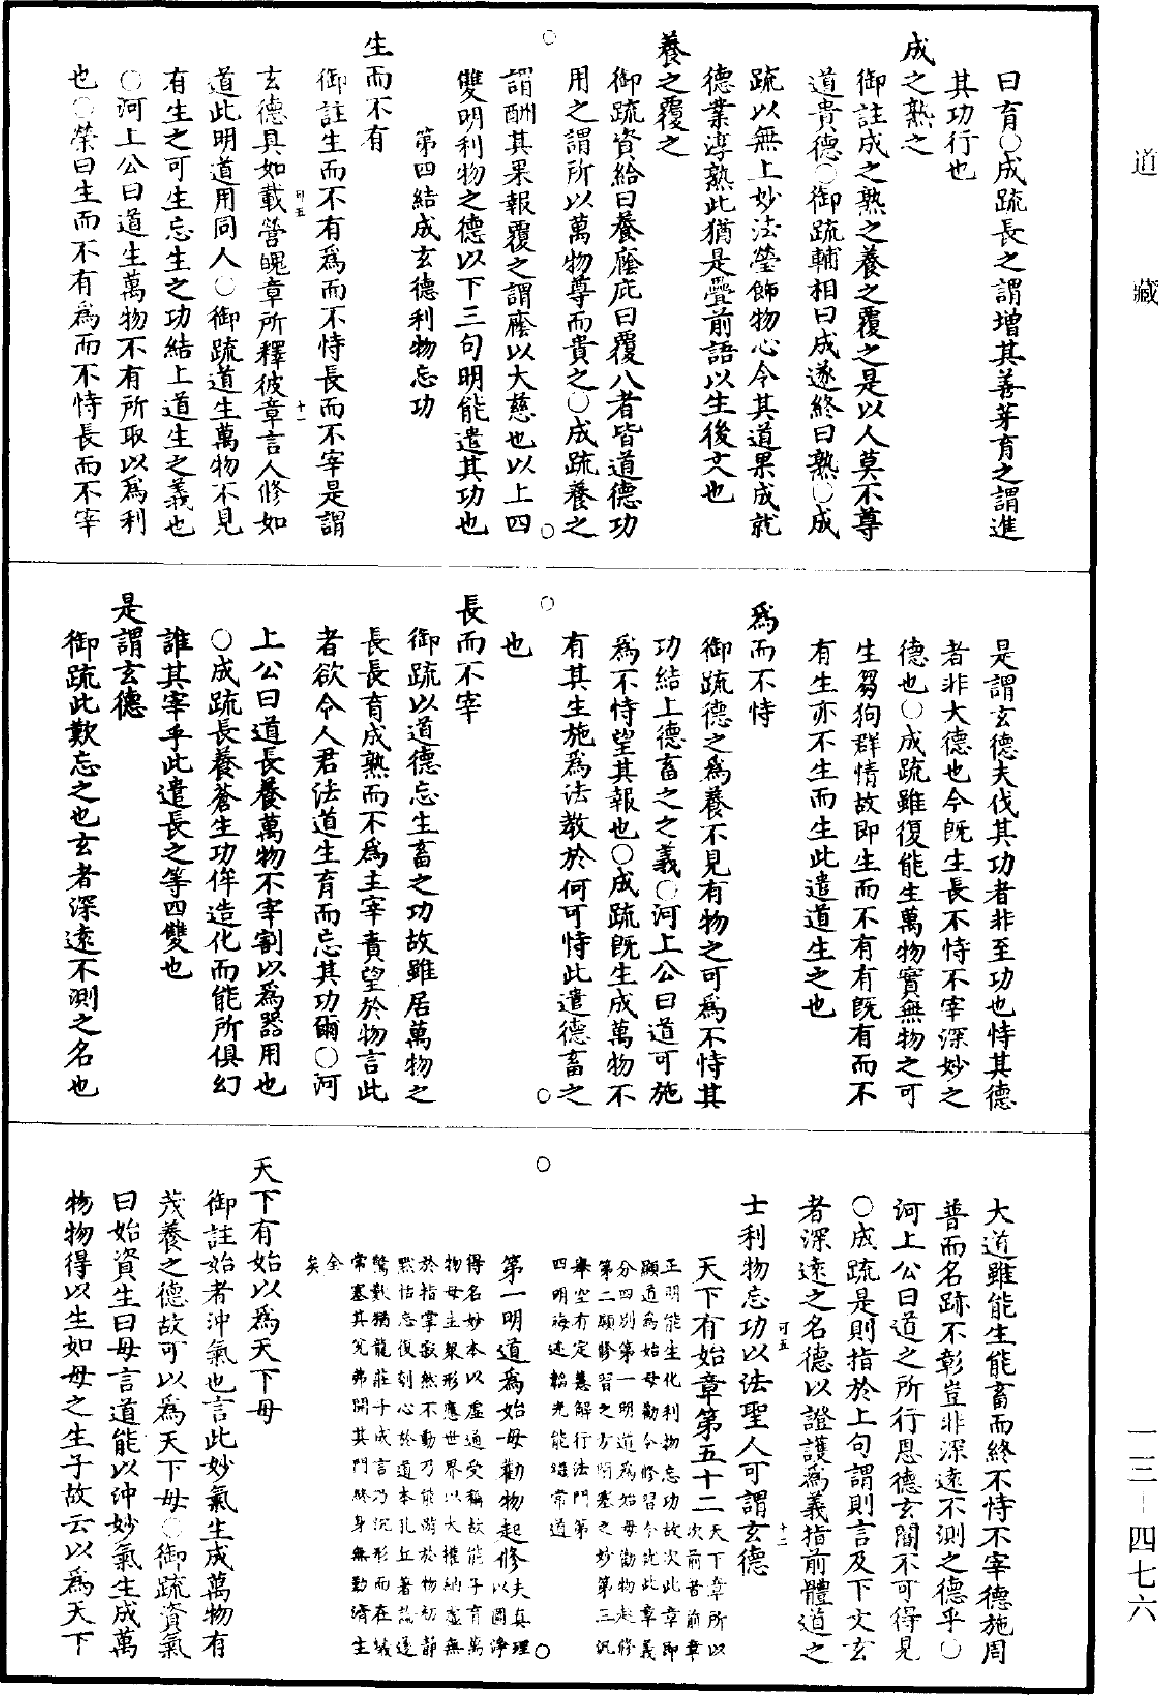 道藏
曰育○成疏長之謂增其善芽育之謂進
其功行也
成之熟之
御註成之熟之養之覆之是以人莫不尊
道貴德○御疏輔相曰成遂終曰熟○成
疏以無上妙法瑩飾物心令其道果成就
德業淳熟此猶是疊前語以生後文也
養之覆之
御疏資給曰養廕庇曰覆八者皆道德功
用之謂所以萬物尊而貴之○成疏養之
謂酬其果報覆之謂廕以大慈也以上四
雙明利物之德以下三句明能遣其功也
第四結成玄德利物忘功
生而不有
御註生而不有為而不恃長而不宰是謂
玄德具如載營魄章所釋彼章言人修如
道此明道用同人○御疏道生萬物不見
有生之可生忘生之功結上道生之義也
○河上公曰道生萬物不有所取以為利
也○榮曰生而不有為而不恃長而不宰
是謂玄德夫伐其功者非至功也恃其德
者非大德也今既生長不恃不宰深妙之
德也○成疏雖復能生萬物實無物之可
生芻狗群情故即生而不有有既有而不
有生亦不生而生此遣道生之也
為而不恃
御疏德之為養不見有物之可為不恃其
功結上德畜之之義○河上公曰道可施
為不恃望其報也○成疏既生成萬物不
有其生施為法教於何可恃此遣德畜之
也
長而不宰
御疏以道德忘生畜之功故雖居萬物之
長長育成熟而不為主宰責望於物言此
者欲令人君法道生育而忘其功爾○河
上公曰道長養萬物不宰割以為器用也
○成疏長養蒼生功侔造化而能所俱幻
誰其宰乎此遣長之等四雙也
是謂玄德
御疏此歎忘之也玄者深遠不測之名也
大道雖能生能畜而終不恃不宰德施周
普而名跡不彰豈非深遠不測之德乎○
河上公曰道之所行恩德玄闇不可得見
○成疏是則指於上句謂則言及下文玄
者深遠之名德以證護為義指前體道之
士利物忘功以法聖人可謂玄德
天下有始章第五十二
天下章所以次前者前章
正明能生化利物忘功故次此章即
顯道為始母勸令修習今此此章義
分四別第一明道為始母勸物起修
第二顯修習之方閉塞之妙第三汎
舉空有定慧解行法門第
四明海迷韜光能襲常道
第一明道為始母勸物起修
夫真理以圓淨
得名妙本以虛通受稱故能子育萬
物母主衆形應世界以大權納虛無
於指掌寂然不動乃能游於物初節
黙恬忘復刻心於道本孔丘著論遂
驚歎猶龍莊子成言乃沉形而在
常塞其兊弗開其門終身無勤濟主
全
矣
天下有始以為天下母
御註始者沖氣也言此妙氣生成萬物有
茂養之德故可以為天下母○御疏資氣
曰始資生曰母言道能以沖妙氣生成萬
物物得以生如母之生子故云以為天下
一三-四七六